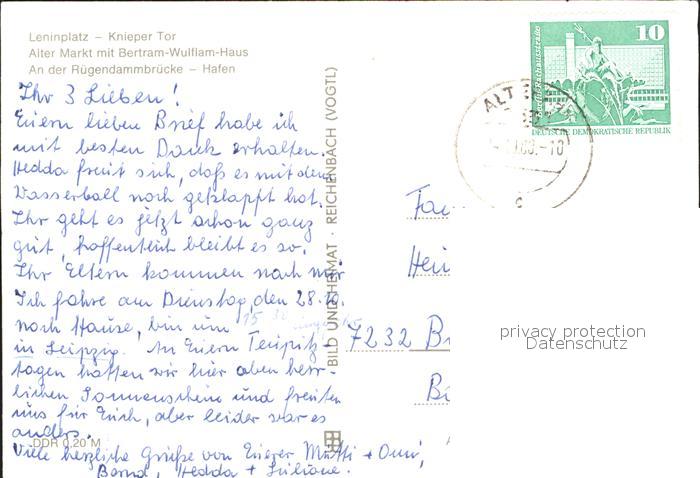 Leninplatz – Knieper Tor
Alter Markt mit Bertram-Wulflam-Haus
An der Rügendammbrücke – Hafen
Ihr 3 Lieben!
Euern lieben Brief habe ich
mit besten Dank erhalten.
Hedda freut sich, daß es mit dem
Wasserball noch geklappt hat.
Ihr geht es jetzt schon ganz
gut, hoffentlich bleibt es so.
Ihr Eltern kommen nach mir
Ich fahre am Dienstag, den 28.10.
nach Hause, bin um 15
in Leipzig. An Euern
tagen hatten wir hier aber herr-
lichen Sonnenschein und freuten
uns für Euch, aber leider war es
anders.
Viele herzliche Grüße von Eurer Mutti + Omi,
Bernd, Hedda + Juliane.
DDR 0,20 M
BILD UND HEIMAT · REICHENBACH (VOGTL)
10
DEUTSCHE DEMOKRATISCHE REPUBLIK
Berlin, Rathausstraße
ALT
c
Fam
Hein
7232 B
privacy protection
Datenschutz